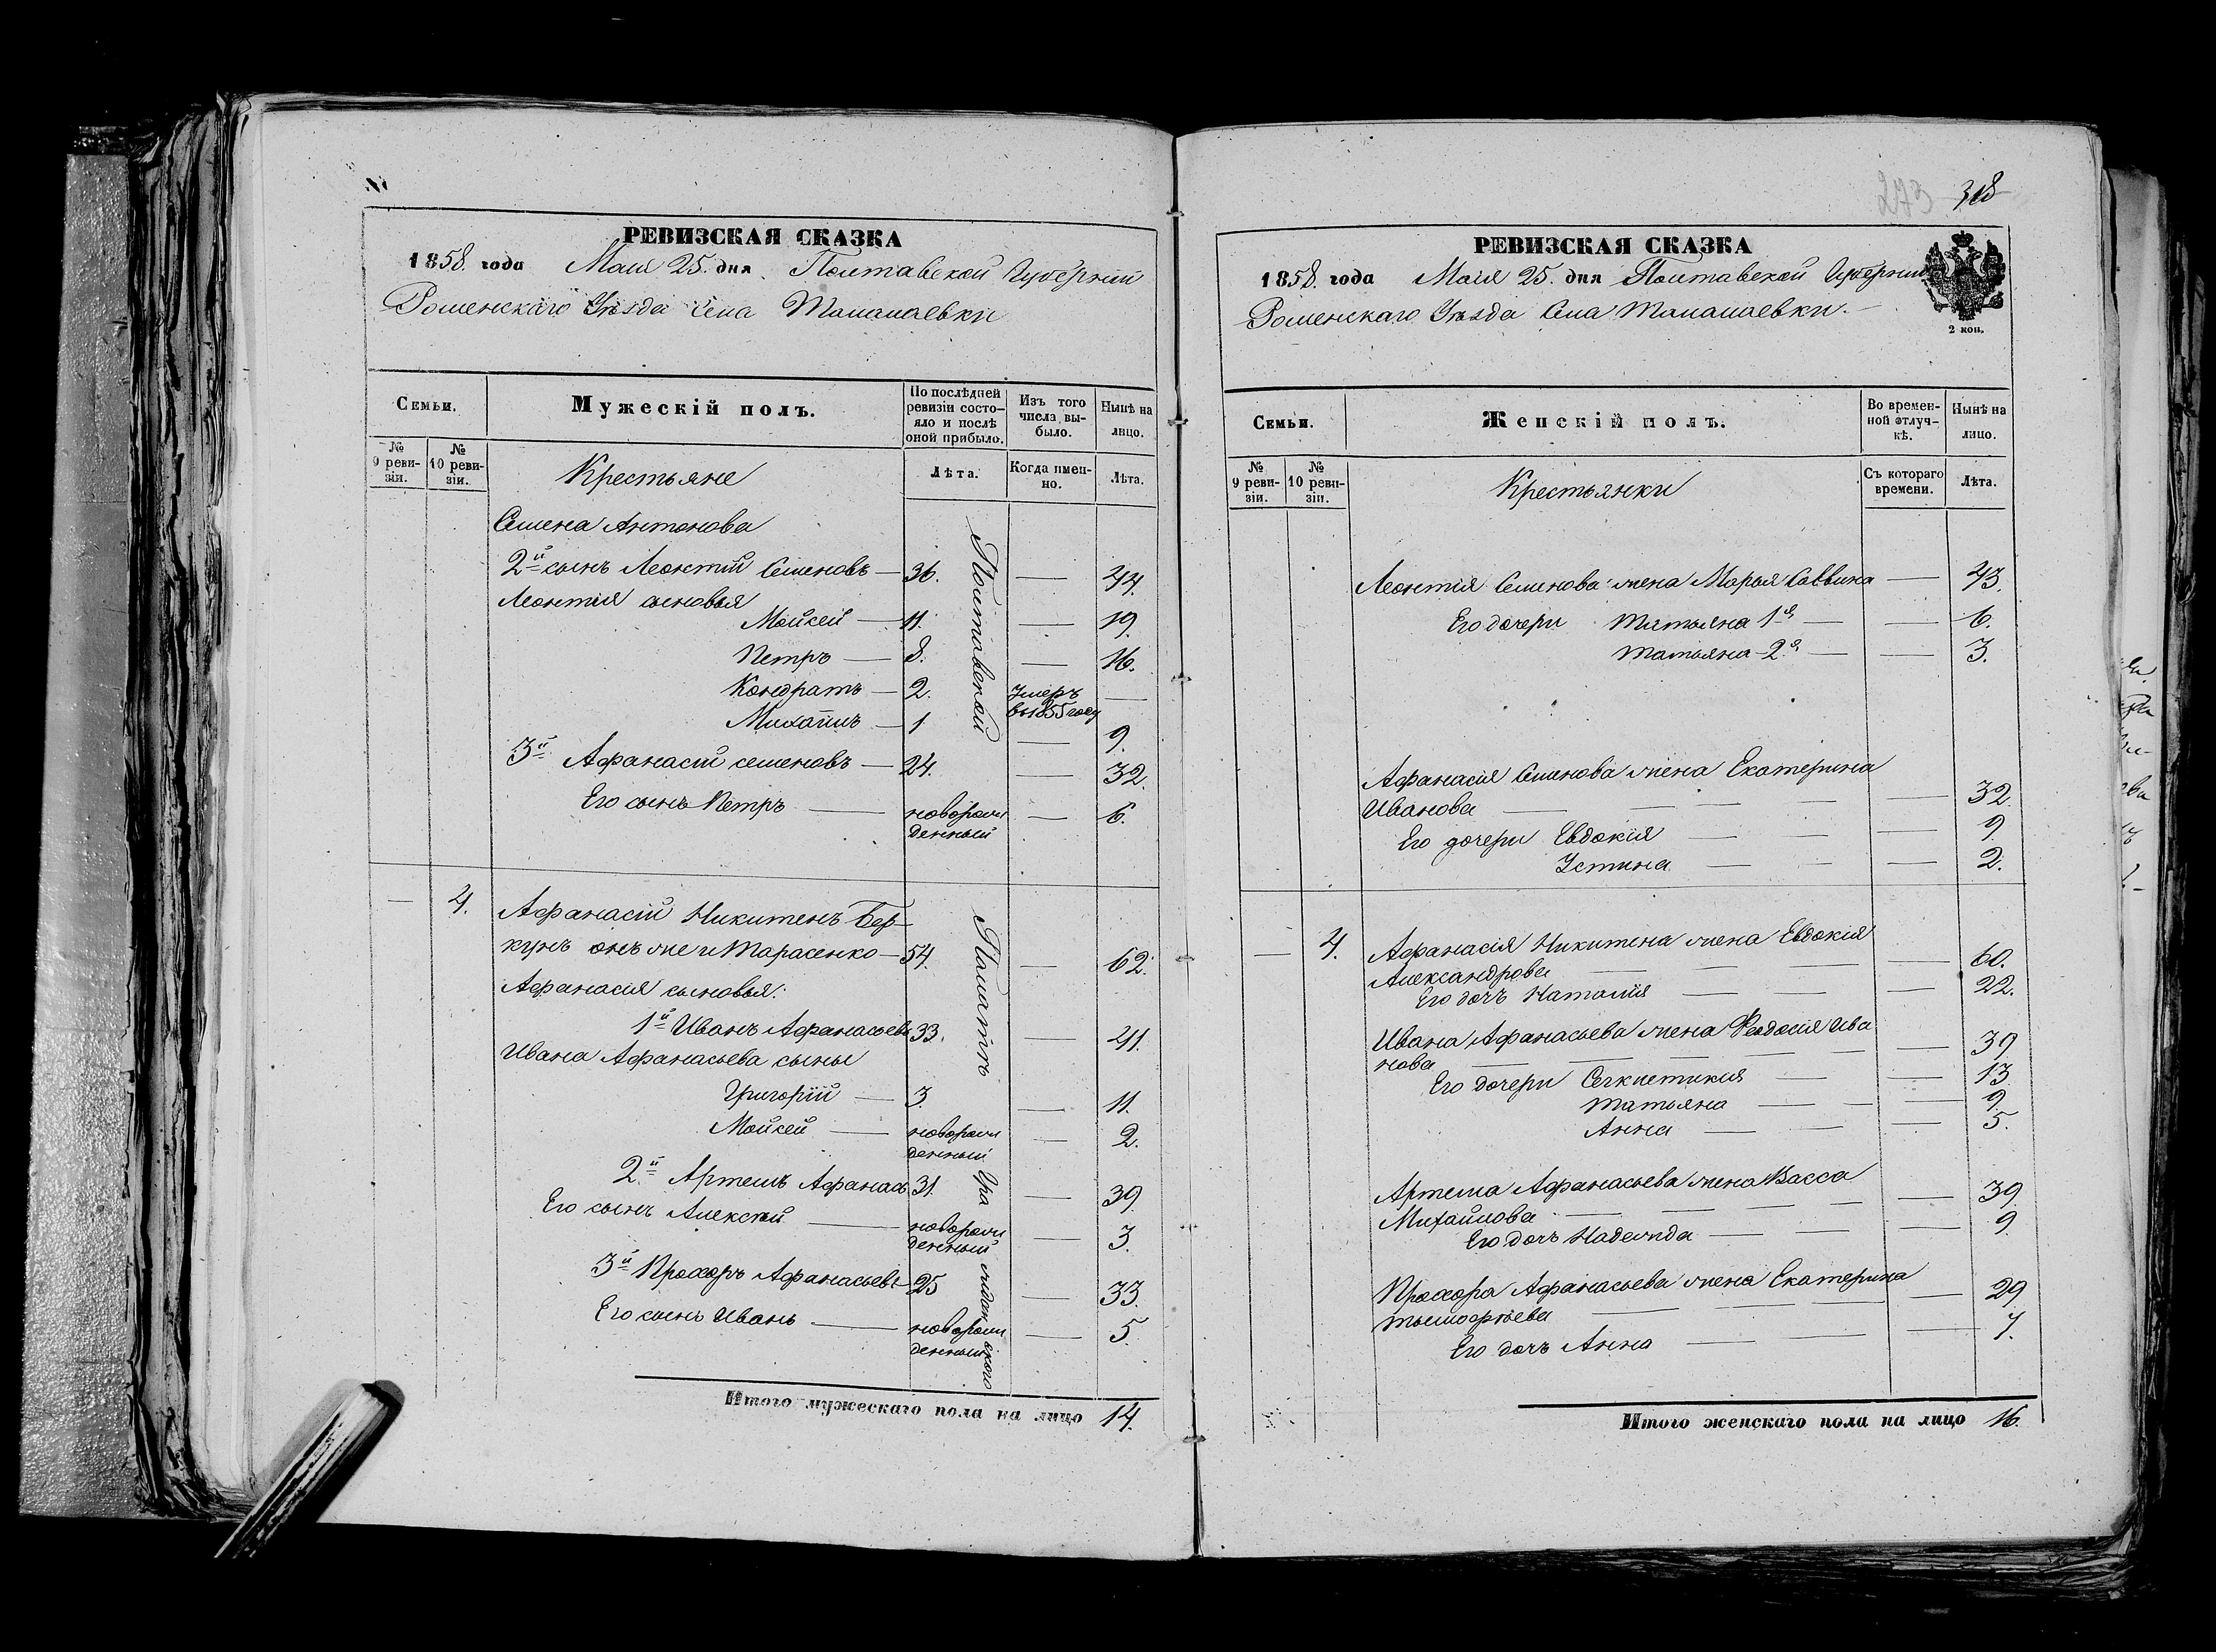 РЕВИЗСКАЯ СКАЗКА
1858. года Маія 25. дня Полтавской Губерніи
Роменскаго Уѣзда Села Талалаевки
Семьи.
Мужескій полъ.
По послѣдней ревизіи состояло и послѣ оной прибыло.
Изъ того числа выбыло.
Нынѣ на лицо.
№ 9 ревизіи.
№ 10 ревизіи.
Крестьяне
Лѣта.
Когда именно.
Лѣта.
Семена Антонова
2й сынъ Леонтій Семеновъ — 36. — 44.
Леонтія сыновья
Мойсей — 11. — 19.
Петръ — 8. — 16.
Кондратъ — 2. Умеръ въ 1855 году —
Михаилъ — 1 — 9.
3й Афанасій семеновъ — 24. — 32.
Его сынъ Петръ — новорож денный — 6.
Полтавской
— 4. Афанасій Никитенъ Бер-
кунъ онъ же и Тарасенко — 54. — 62.
Афанасія сыновья:
1й Иванъ Афанасьевъ 33. — 41.
Ивана Афанасьева сыны
Григорій — 3. — 11.
Мойсей — новорож денный — 2.
2й Артемъ Афанась 31. — 39.
Его сынъ Алексѣй — новорож денный — 3.
3й Прохоръ Афанасьевъ 25 — 33.
Его сынъ Иванъ — новорож денный — 5.
Палатъ Гра жданскаго
Итого мужескаго пола на лицо 14.
273 318
РЕВИЗСКАЯ СКАЗКА
1858. года Маія 25. дня Полтавской Губерніи
Роменскаго Уѣзда Села Талалаевки.
2 коп.
Семьи.
Женскій полъ.
Во временной отлучкѣ.
Нынѣ на лицо.
№ 9 ревизіи.
№ 10 ревизіи.
Крестьянки
Съ котораго времени.
Лѣта.
Леонтія Семенова жена Марья Саввина — 43.
Его дочери Татьяна 1я — 6.
Татьяна 2я — 3.
Афанасія Семенова жена Екатерина
Иванова — 32.
Его дочери Евдокія — 9
Устина — 2.
— 4. Афанасія Никитена жена Евдокія
Александрова — 60.
Его дочь Наталія — 22.
Ивана Афанасьева жена Феодосія Ива
нова — 39
Его дочери — 13
Татьяна — 9.
Анна — 5.
Артема Афанасьева жена Васса
Михайлова — 39
Его дочь Надежда — 9.
Прохора Афанасьева жена Екатерина
Тымофѣева — 29
Его дочь Анна — 7.
Итого женскаго пола на лицо 16.